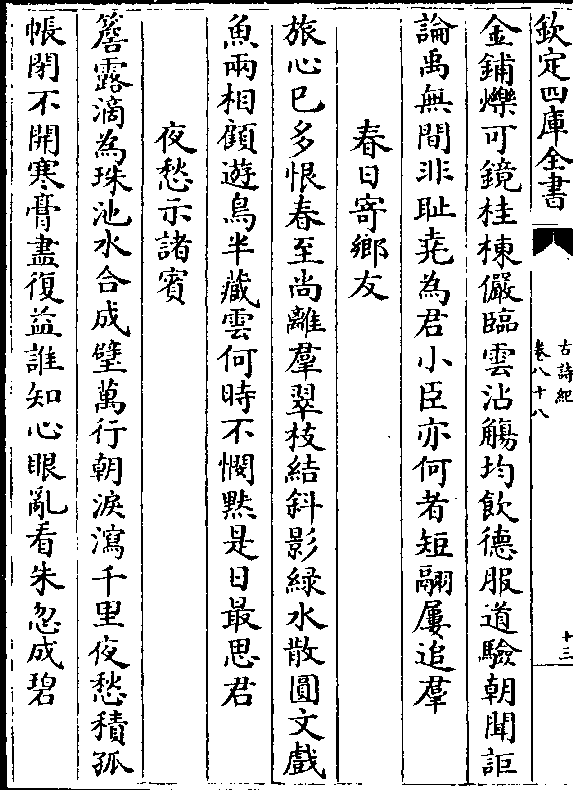 欽定四庫全書
古詩紀
卷八十八
十三
金鋪爍可鏡桂棟儼臨雲沾觴均飲德服道驗朝聞詎
論禹無間非耻堯為君小臣亦何者短翮屢追羣
春日寄鄉友
旅心已多恨春至尚離羣翠枝結斜影綠水散圓文戲
魚兩相顧遊鳥半藏雲何時不憫黙是日最思君
夜愁示諸賔
簷露滴為珠池水合成璧萬行朝淚瀉千里夜愁積孤
帳閉不開寒膏盡復益誰知心眼亂看朱忽成碧